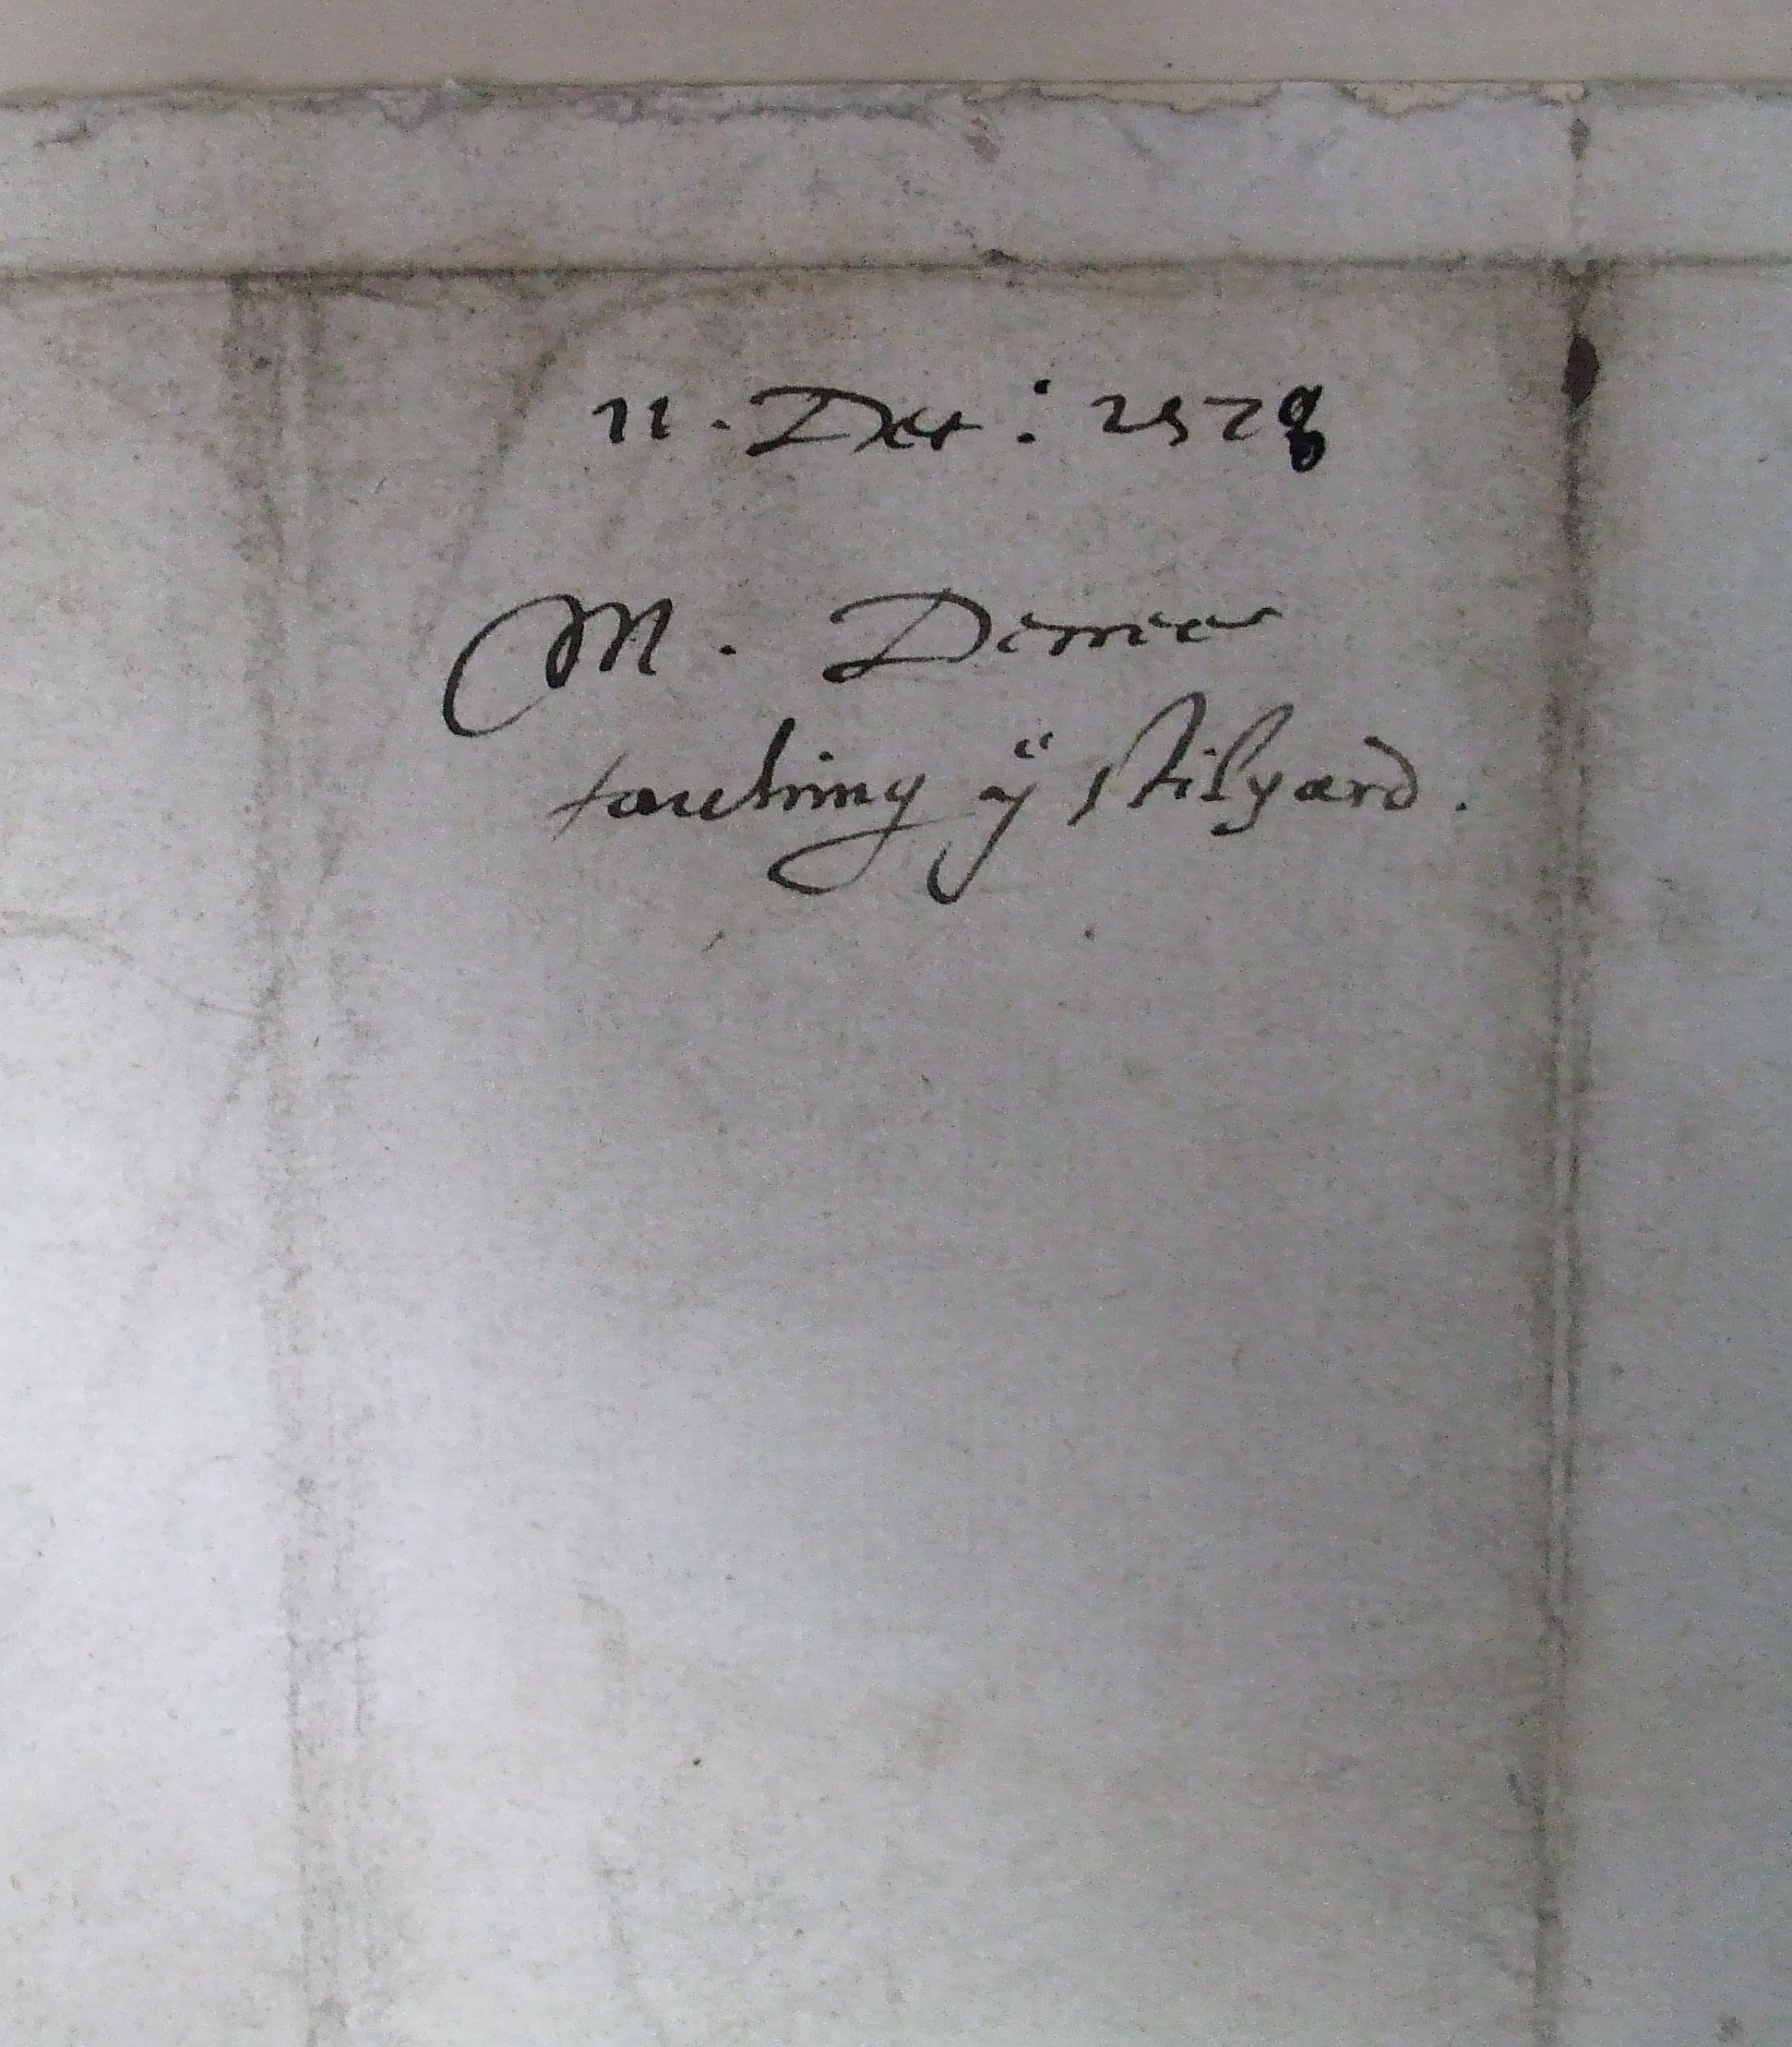 11. Dec: 1578
M. Dennee
touching yͤ stilyard.